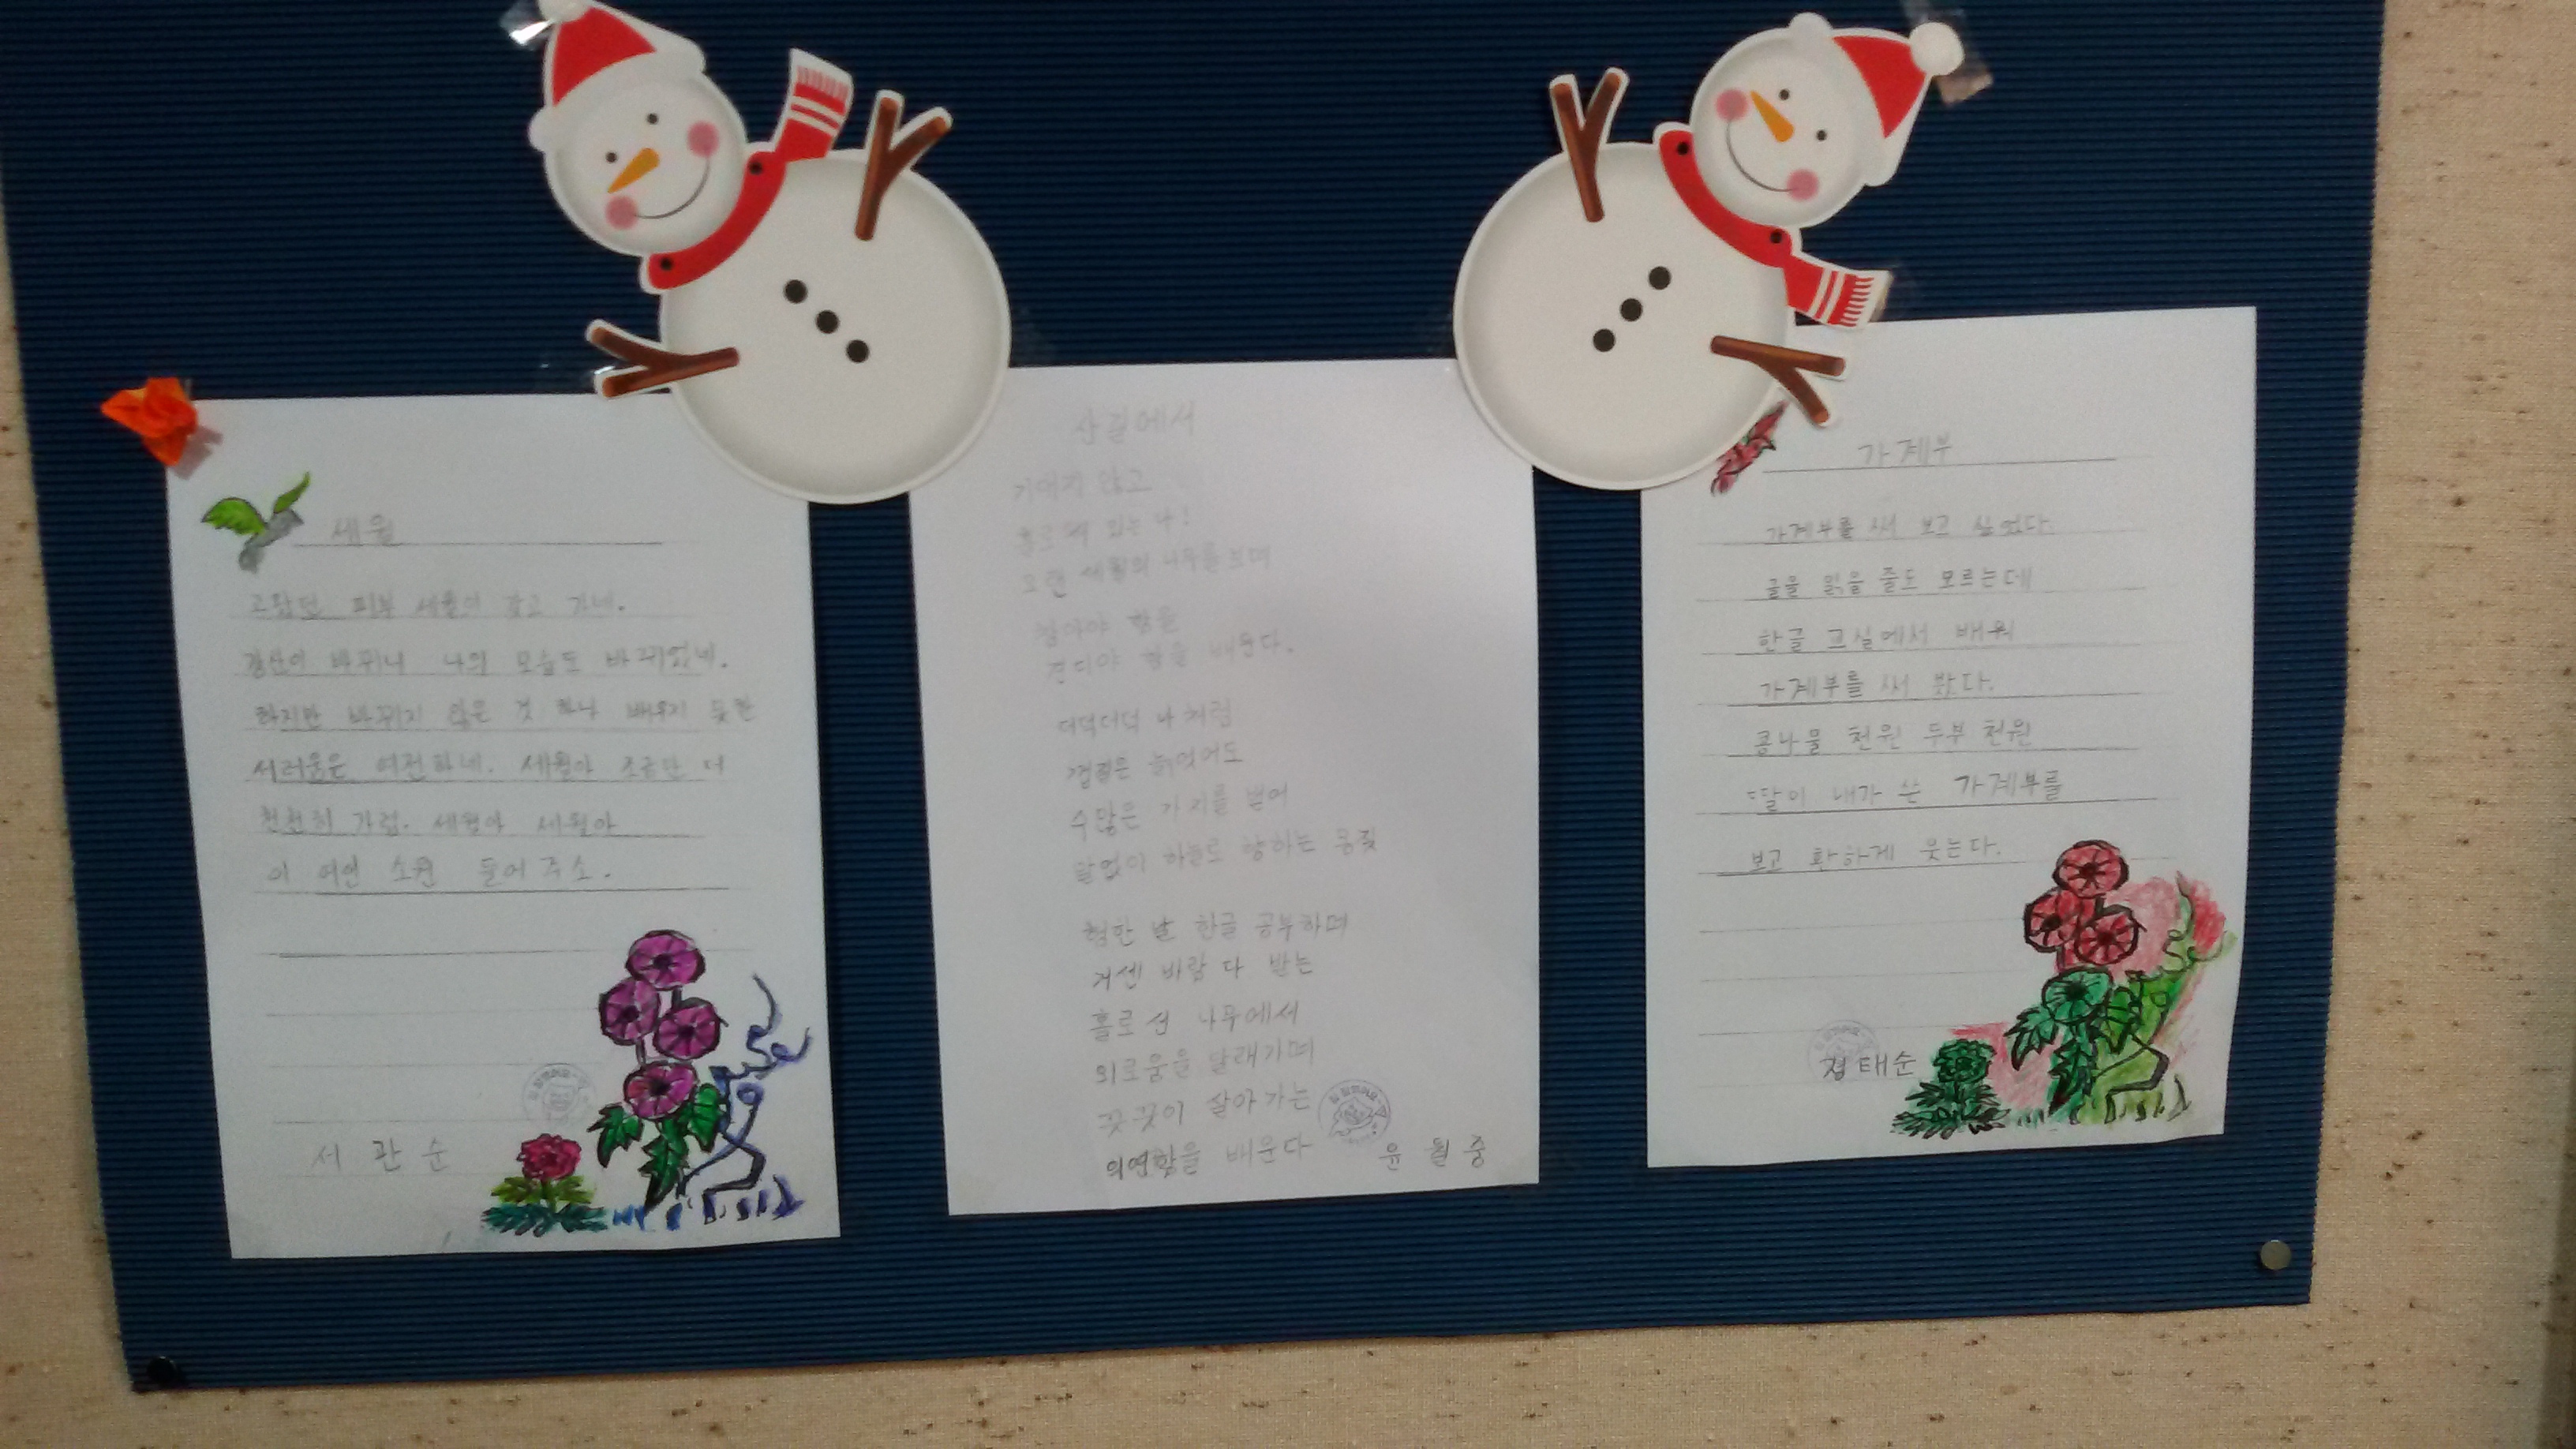 세월
고왔던 피부 세월이 갖고 가네.
강산이 바뀌니 나의 모습도 바뀌었네.
하지만 바뀌지 않은 것 하나 배우지 못한
서러움은 여전하네. 세월아 조금만 더
천천히 가렴. 세월아 세월아
이 여인 소원 들어주소.
서관순
산길에서
기대지 않고
홀로 서 있는 나!
오랜 세월의 나무를 보며
참아야 함을
견디야 함을 배운다.
더덕더덕 나처럼
껍질은 늙었어도
수많은 가지를 벌여
말없이 하늘로 향하는 몸짓
험한 날 한글 공부하며
거센 바람 다 받는
홀로 선 나무에서
외로움을 달래기며
꿋꿋이 살아가는
의연함을 배운다
윤월중
가계부
가계부를 써 보고 싶었다.
글을 읽을 줄도 모르는데
한글 교실에서 배워
가계부를 써 봤다.
콩나물 천원 두부 천원
딸이 내가 쓴 가계부를
보고 환하게 웃는다.
정태순